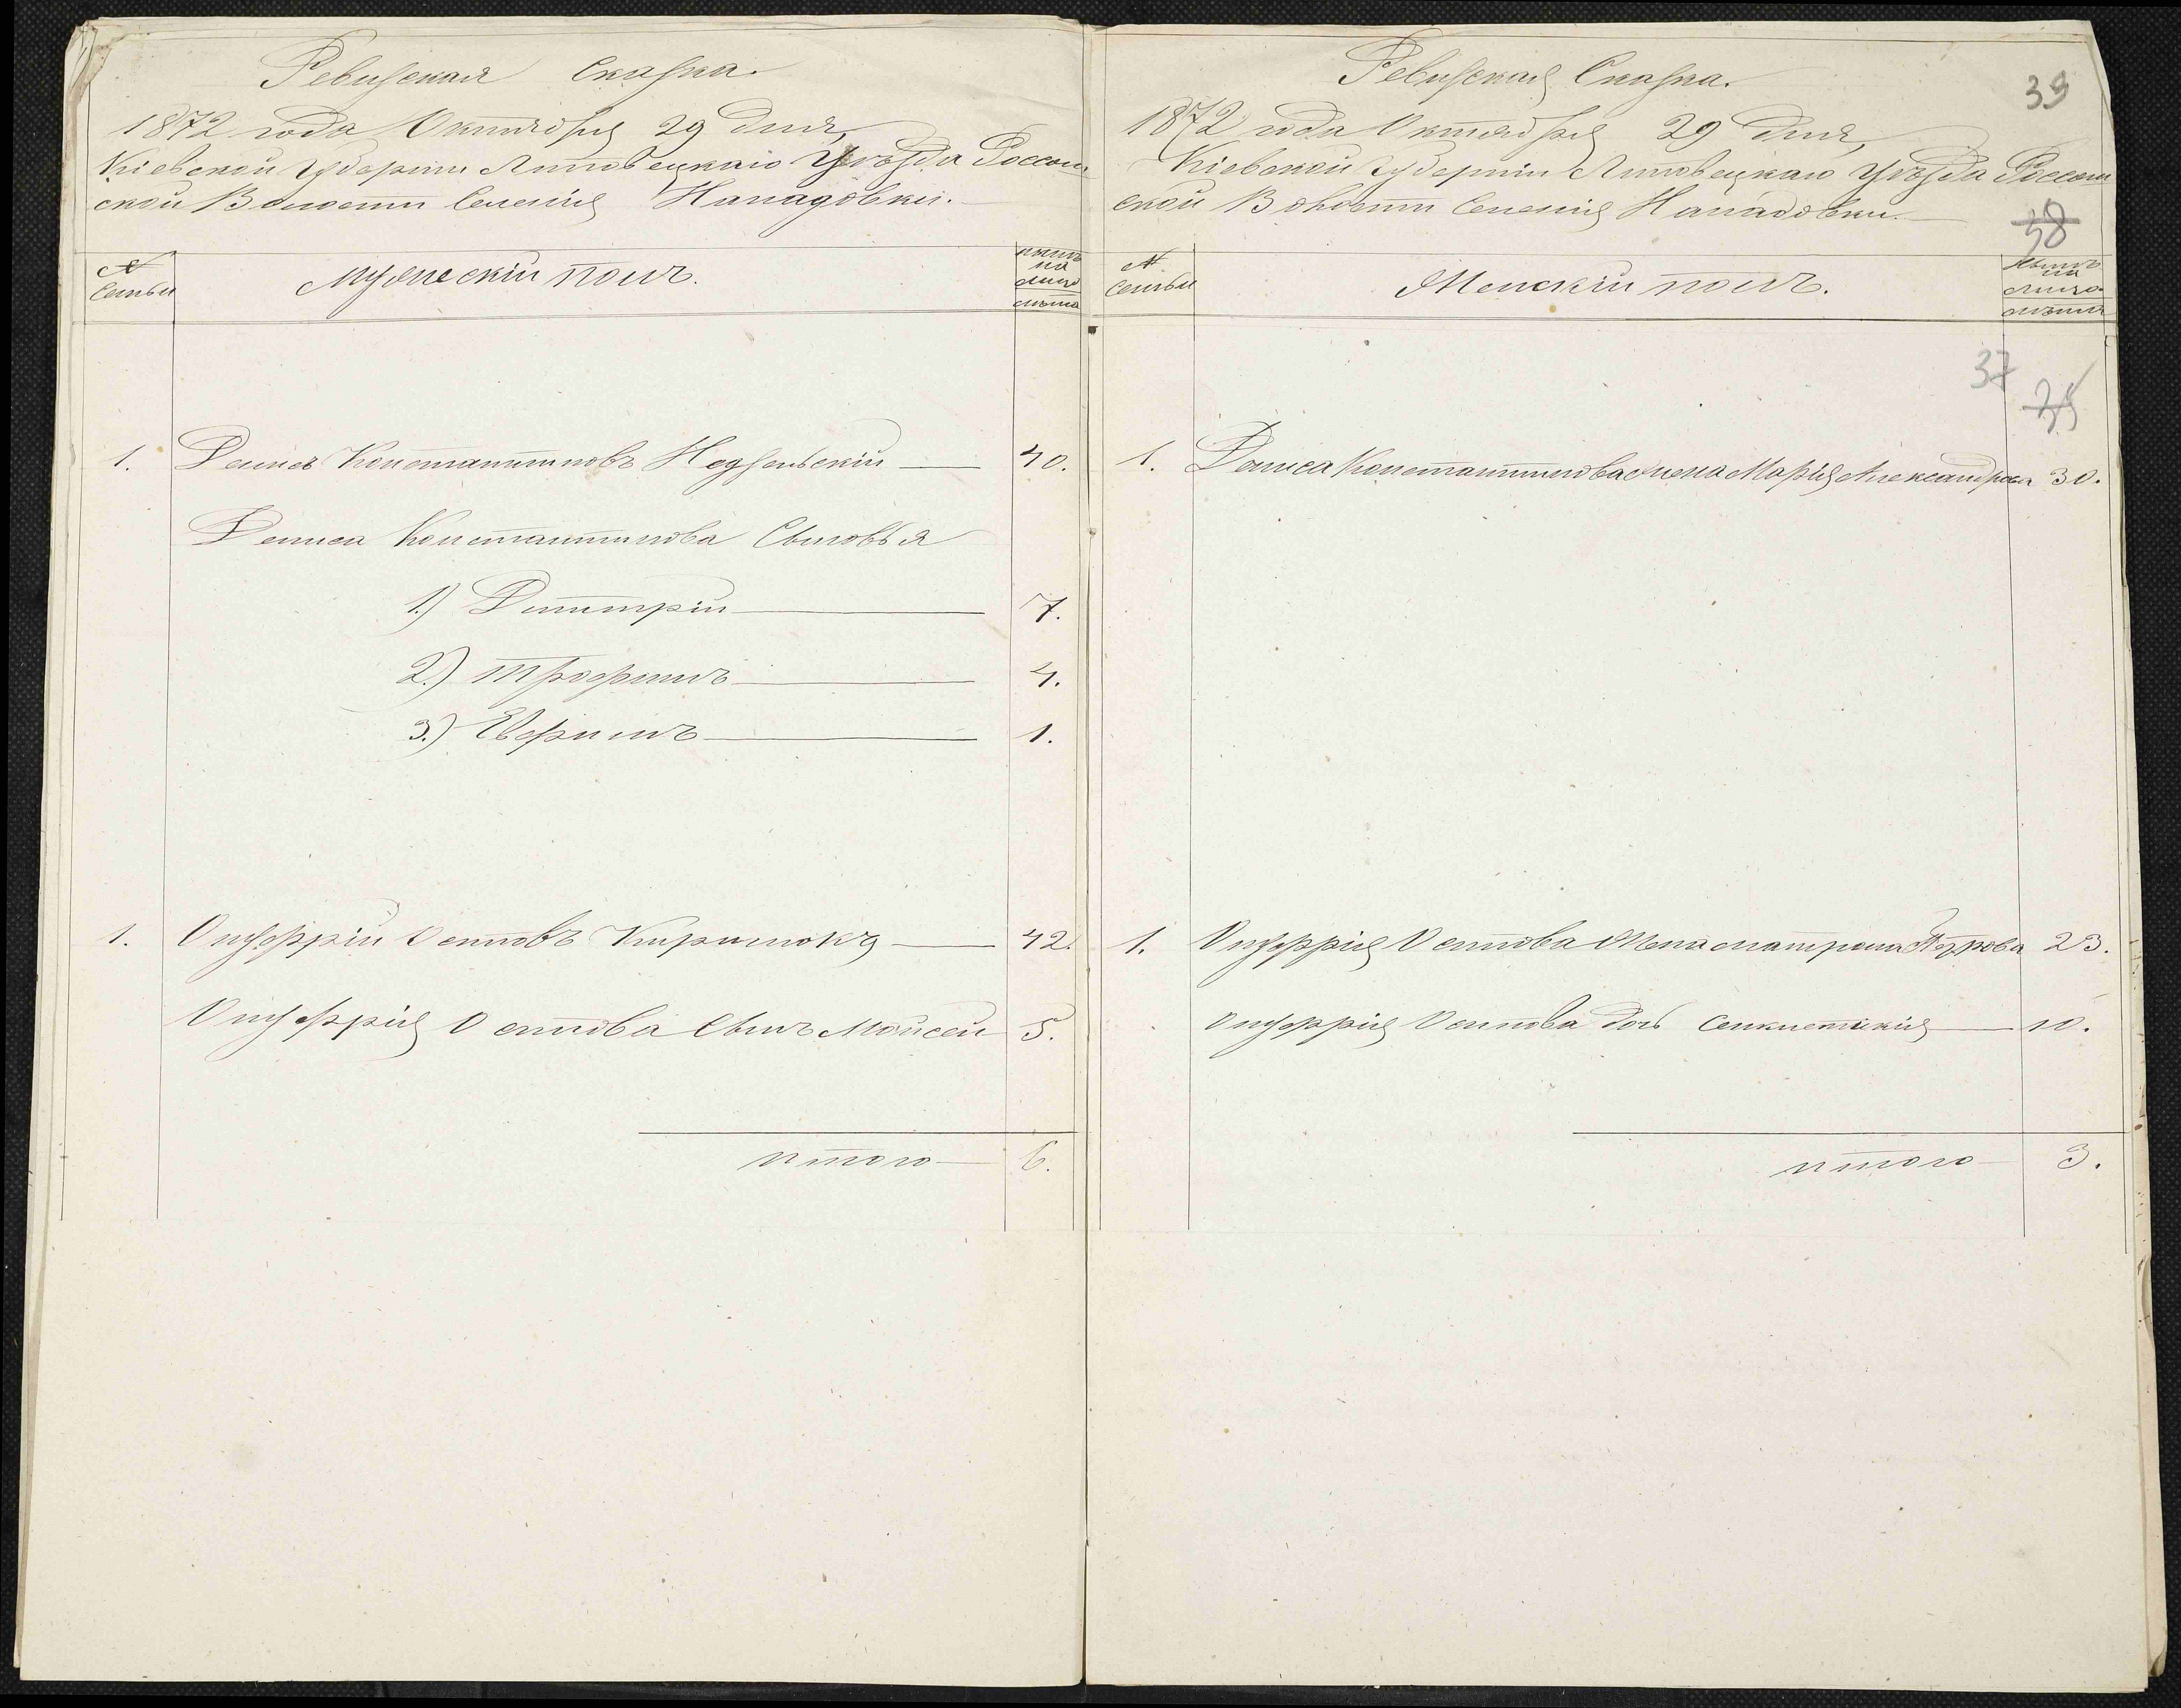 Ревизская Сказка.
1872 года Октября 29 дня,
Кіевской Губерніи Липовецкаго Уѣзда Россош
ской Волости Селенія Нападовки.
№ Семьи
Мужескій полъ.
нынѣ на лицо
лѣта
1. Денисъ Константиновъ Недзельскій 40.
Дениса Константинова Сыновья
1.) Димитрій 7.
2.) Трофимъ 4.
3.) Ефримъ 1.
1. Онуфрій Осиповъ Кирилюкъ 42.
Онуфрія Осипова Сынъ Мойсей 5.
итого 6.
Ревизская Сказка.
39
1872 года Октября 29 дня,
Кіевской Губерніи Липовецкаго Уѣзда Россош
ской Волости Селенія Нападовки.
38
№ Семьи
Женскій полъ.
нынѣ на лицо
лѣта
37
1. Дениса Константинова жена Марія Александрова 30.
1. Онуфрія Осипова Жена Матрона 23.
Онуфрія Осипова дочь Синклетикія 10.
итого 3.